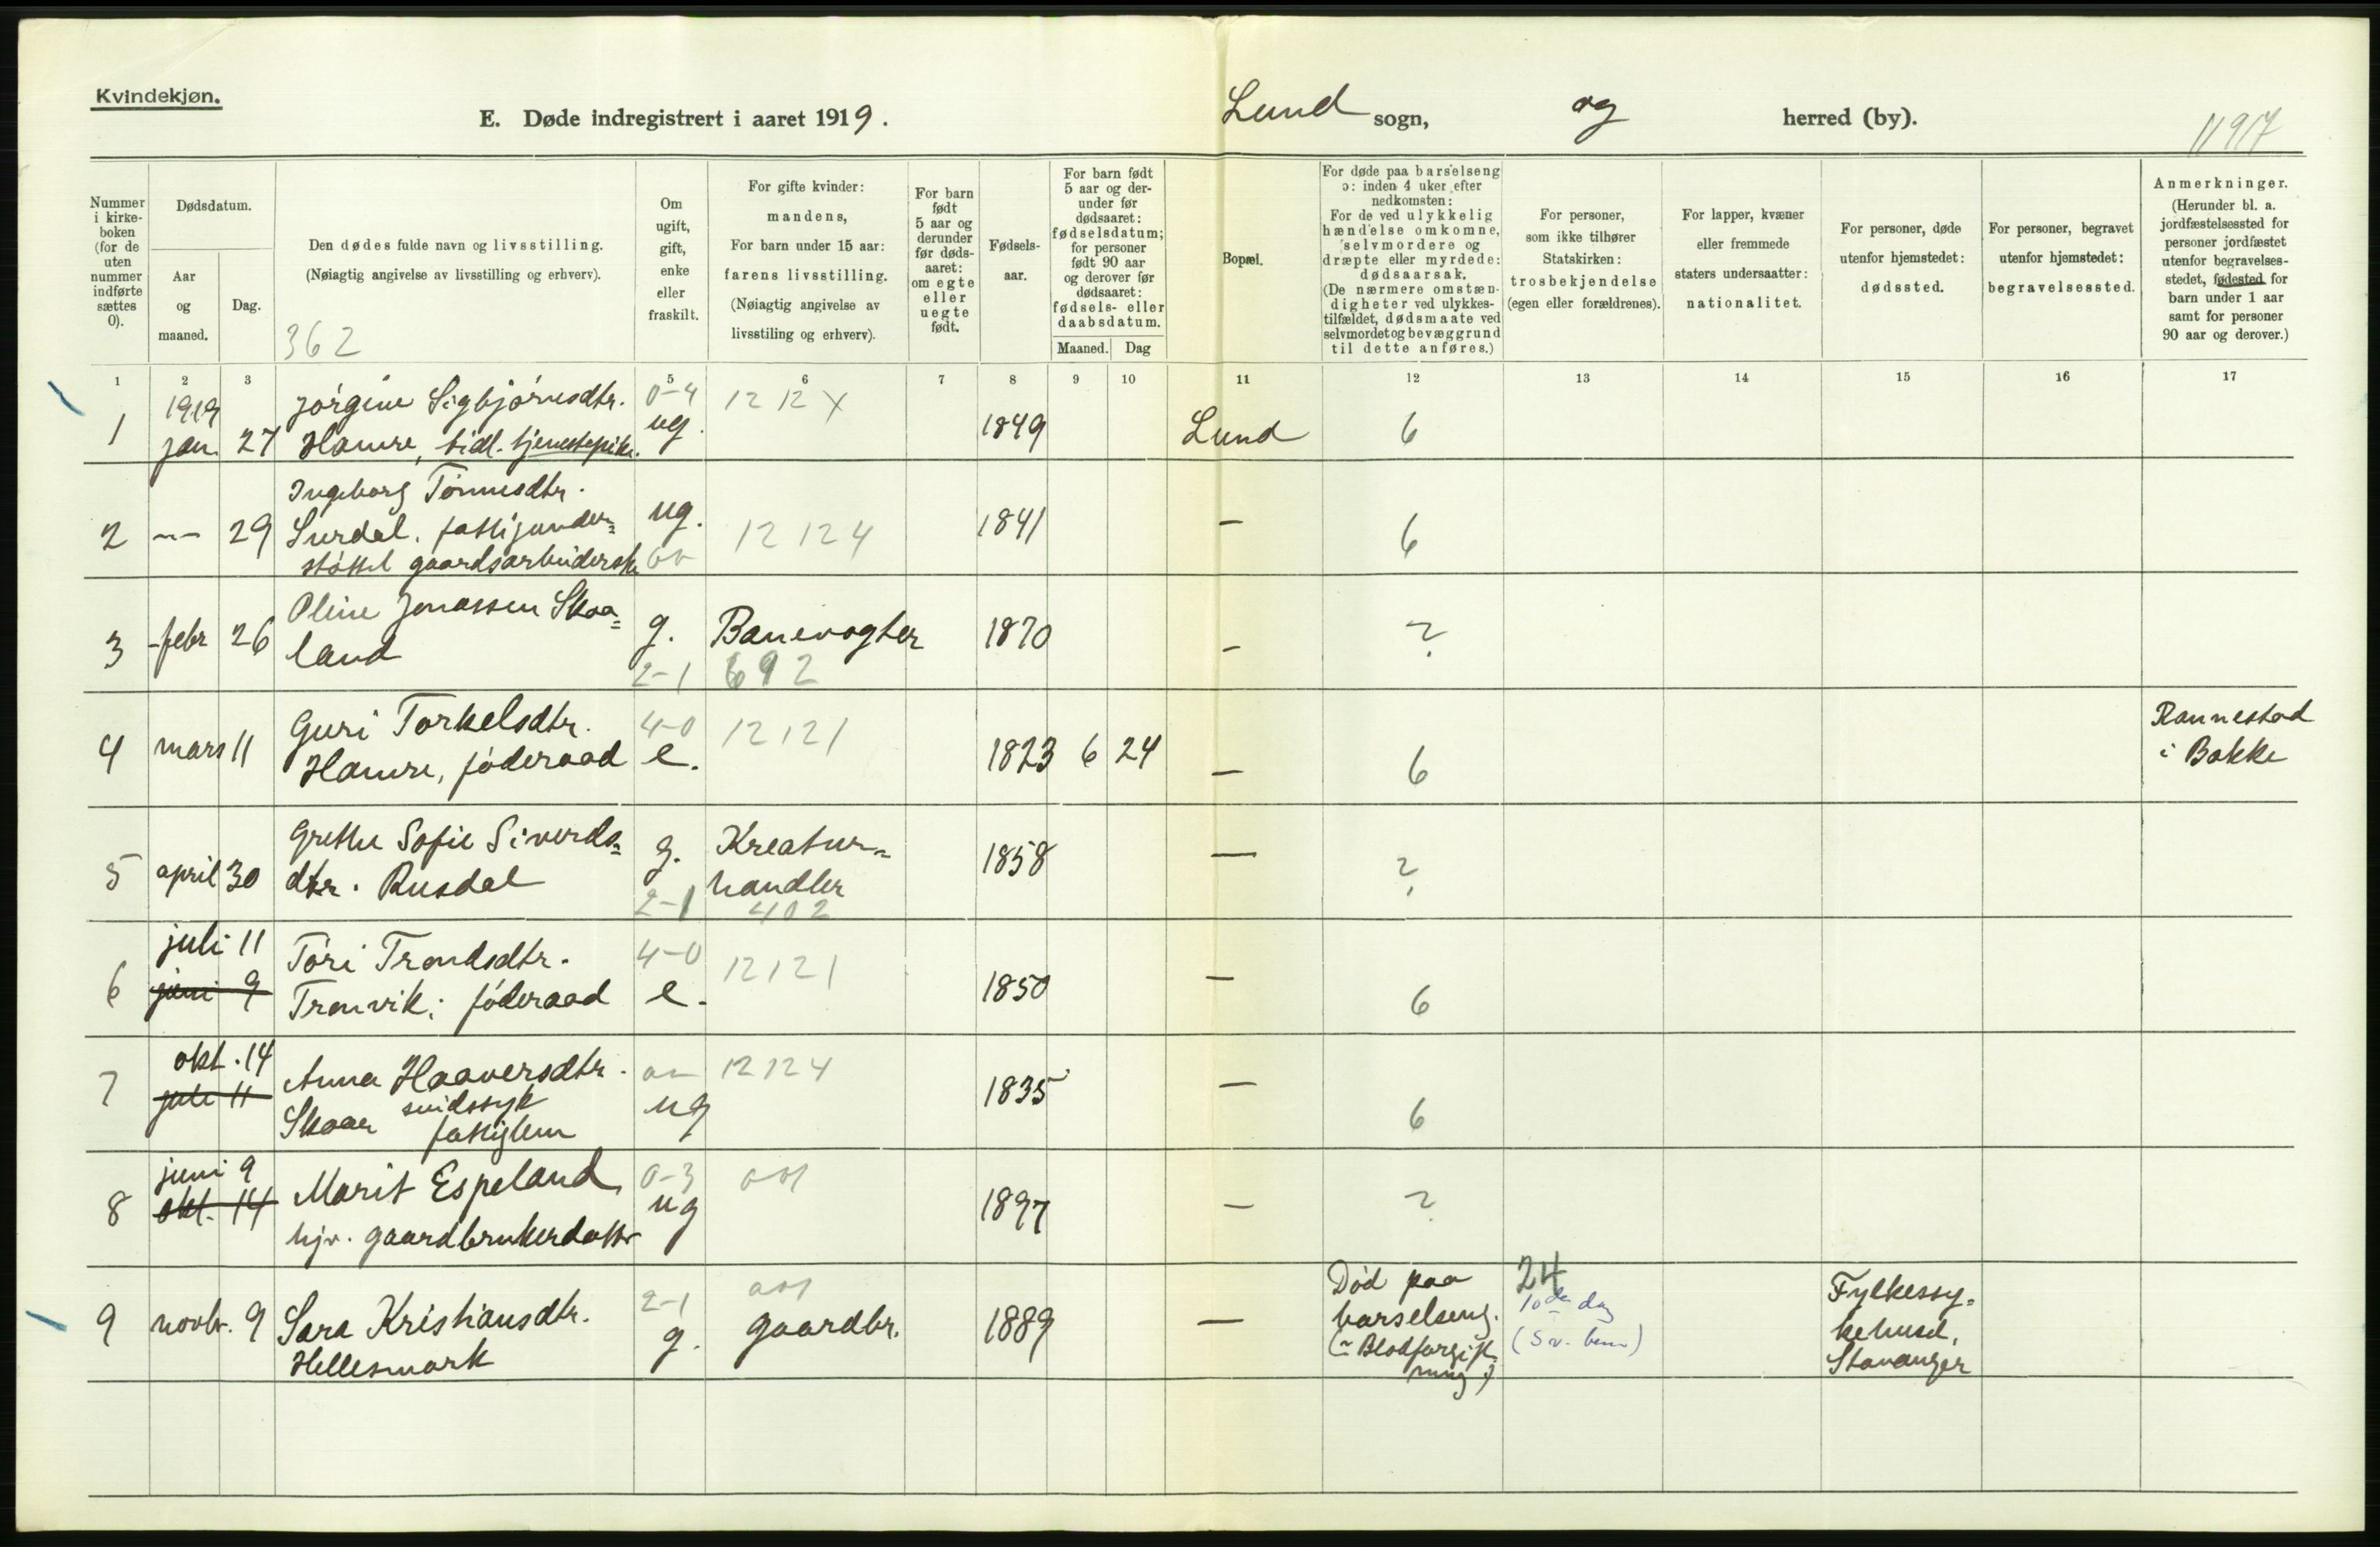 Kvindekjøn.
E. Døde indregistrert i aaret 1919.
Lund sogn, og herred (by).
11917
Nummer i kirkeboken (for de uten nummer indførte sættes 0).
Dødsdatum.
Aar og maaned.
Dag.
Den dødes fulde navn og livsstilling.
(Nøiagtig angivelse av livsstilling og erhverv).
362
Om ugift, gift, enke eller fraskilt.
For gifte kvinder:
mandens,
For barn under 15 aar:
farens livsstilling.
(Nøiagtig angivelse av
livsstiling og erhverv).
For barn født 5 aar og derunder før dødsaaret: om egte eller uegte født.
Fødselsaar.
For barn født 5 aar og derunder før dødsaaret: fødselsdatum; for personer født 90 aar og derover før dødsaaret: fødsels- eller daabsdatum.
Maaned. Dag
Bopæl.
For døde paa barselseng
ɔ: inden 4 uker efter
nedkomsten:
For de ved ulykkelig
hændelse omkomne,
selvmordere og
dræpte eller myrdede:
dødsaarsak.
(De nærmere omstæn-
digheter ved ulykkes-
tilfældet, dødsmaate ved
selvmordet og bevæggrund
til dette anføres.)
For personer,
som ikke tilhører
Statskirken:
trosbekjendelse
(egen eller forældrenes).
For lapper, kvæner
eller fremmede
staters undersaatter:
nationalitet.
For personer, døde
utenfor hjemstedet:
dødssted.
For personer, begravet
utenfor hjemstedet:
begravelsessted.
Anmerkninger.
(Herunder bl. a.
jordfæstelsessted for
personer jordfæstet
utenfor begravelses-
stedet, fødested for
barn under 1 aar
samt for personer
90 aar og derover.)
1 2 3 5 6 7 8 9 10 11 12 13 14 15 16 17
1 1919 jan. 27 Jørgine Sigbjørnsdtr. 0-4 12 12 X
Hamre, tidl. tjenestepike. ug. 1849 Lund 6
2 -"- 29 Ingeborg Tønnesdtr.
Surdal. fattigunder=
støttet gaardsarbeiderske ug. 12 12 4 1841 - 6
3 - febr 26 Oline Jonassen Skaa=
land g. 2-1 Banevogter 692 1870 - ?
4 mars 11 Guri Torkelsdtr. 4-0 12 12 1
Hamre, føderaad e. 1823 6 24 - 6 Rannestad
i Bakke
5 april 30 Grethe Sofie Siverds=
dtr. Rusdal g. 2-1 Kreatur=
handler 402 1858 - ?
6 juli 11 juni 9 Tori Trondsdtr. 4-0 12 12 1
Tronvik; føderaad e. 1850 - 6
7 okt. 14 juli 11 Anna Haaversdtr. 12 12 4
Skaar sindssyk
fattiglem ug 1835 - 6
8 juni 9 okt. 14 Marit Espeland, 0-3
hjv. gaardbrukerdatter ug 1897 - ?
9 novbr. 9 Sara Kristiansdtr. 2-1
Hellesmark g. gaardbr. 1889 - Død paa
barselseng.
(Blodforgift-
ning) 24
10de dag
Fylkessy=
kehuset,
Stavanger